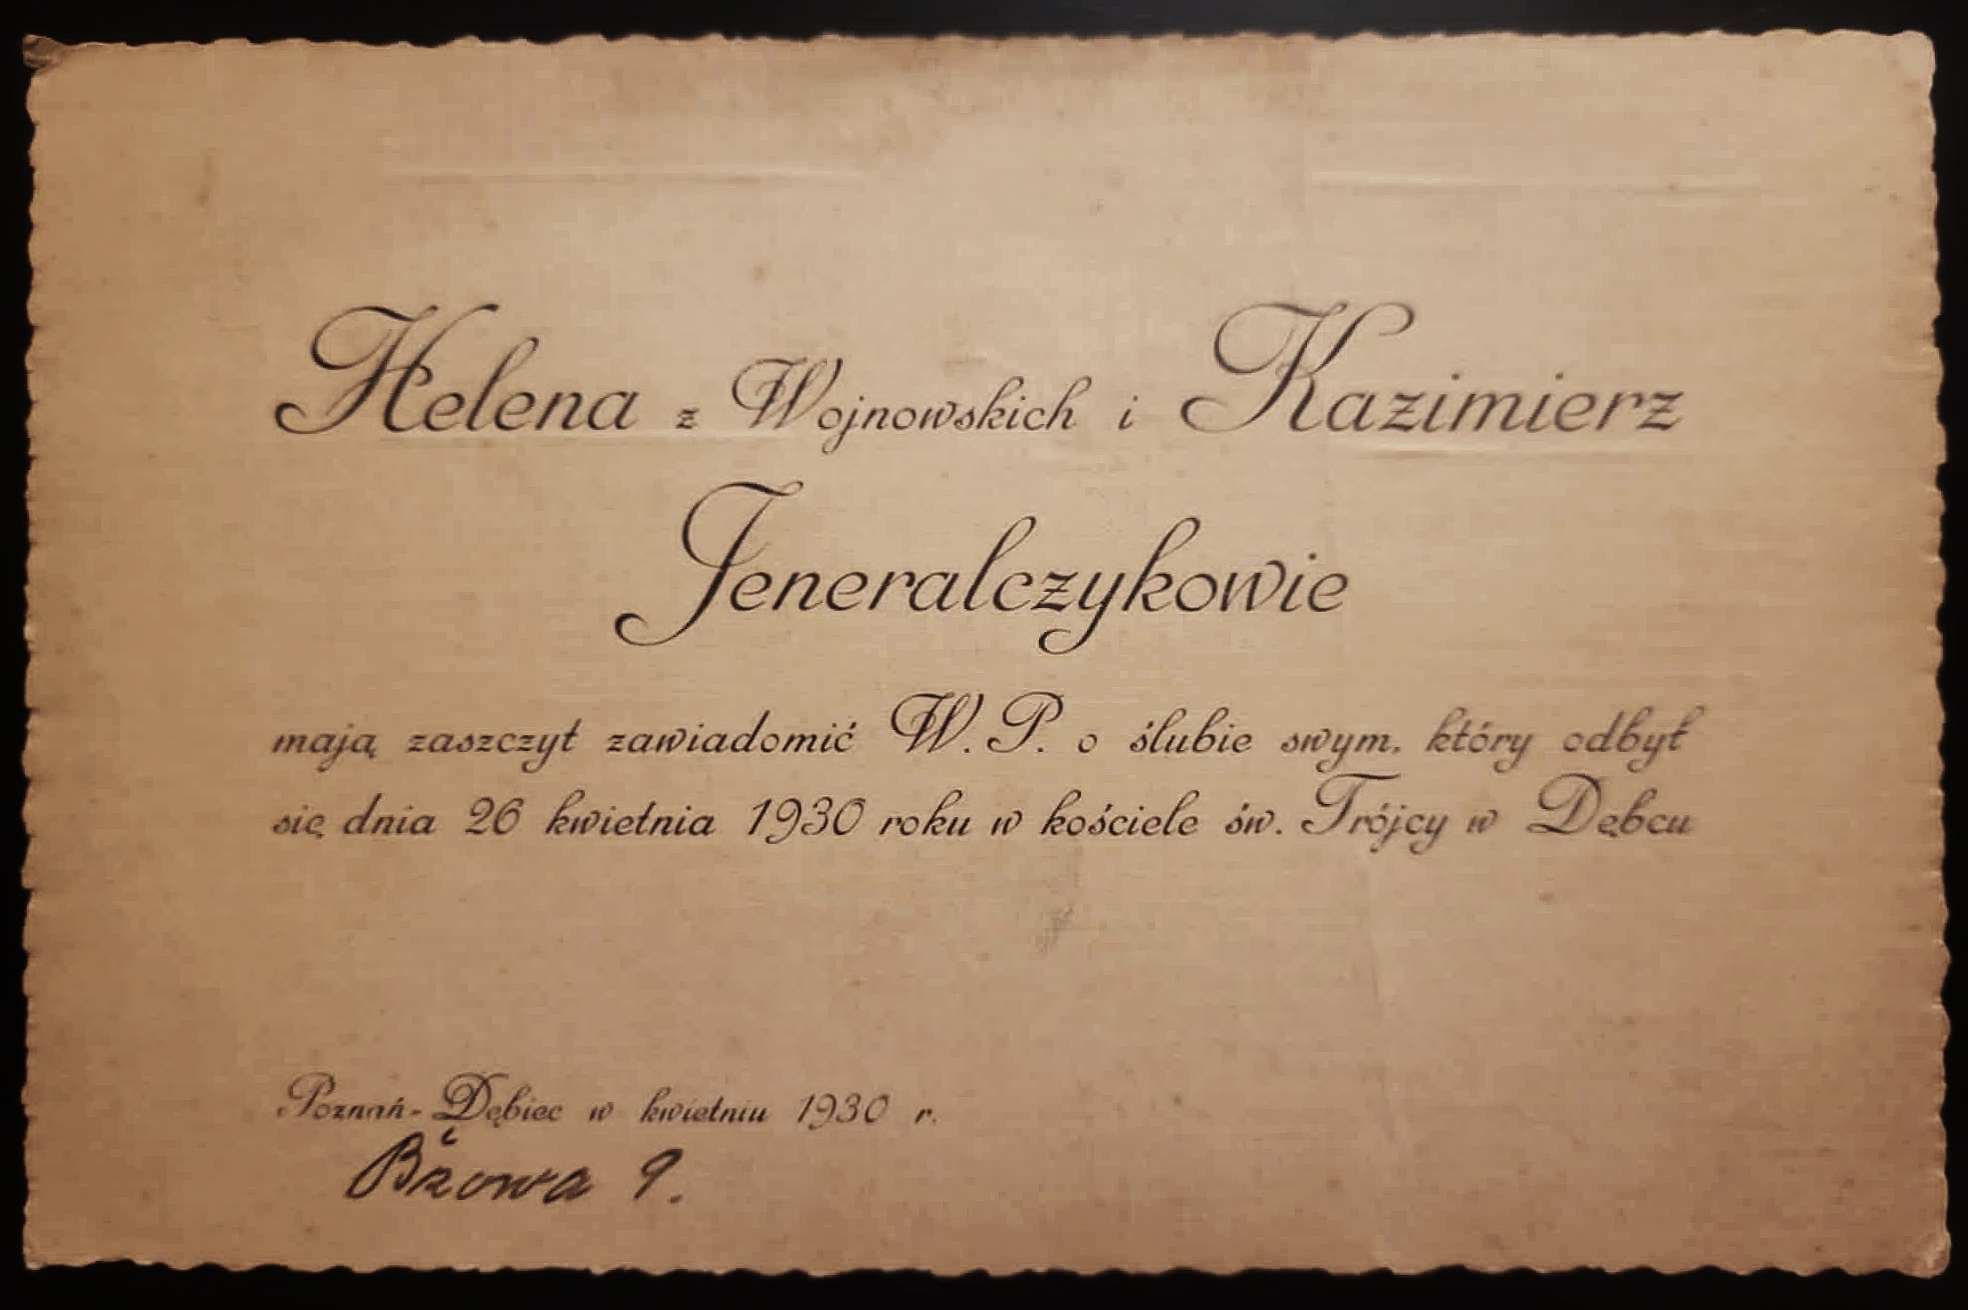 Helena z Wojnowskich i Kazimierz
Jeneralczykowie
mają zaszczyt zawiadomić W. P. o ślubie swym, który odbył
się dnia 26 kwietnia 1930 roku w kościele św. Trójcy w Dębcu
Poznań-Dębiec w kwietniu 1930 r.
Bżowa 9.